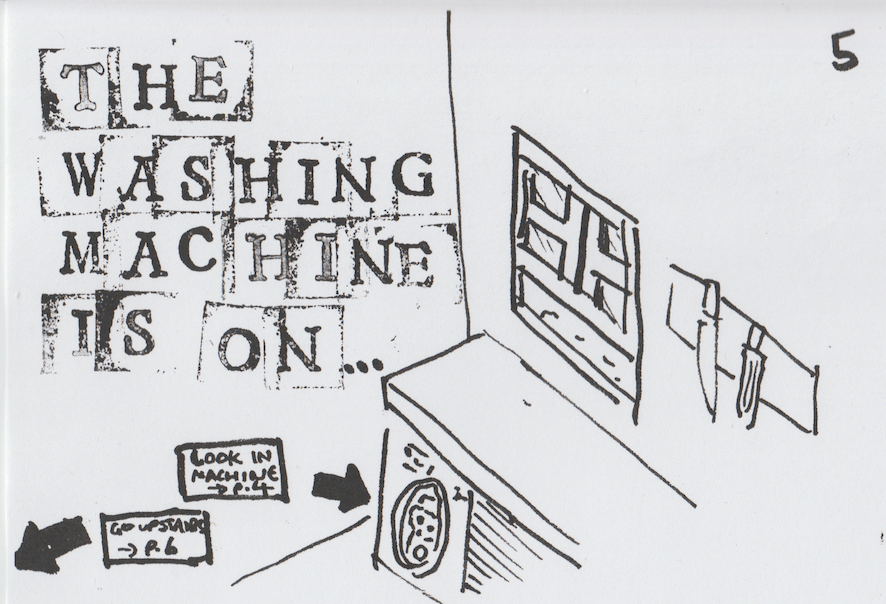 5
THE
WASHING
MACHINE
IS ON...
LOOK IN
MACHINE
→ P.4
GO UPSTAIRS
→ P.6